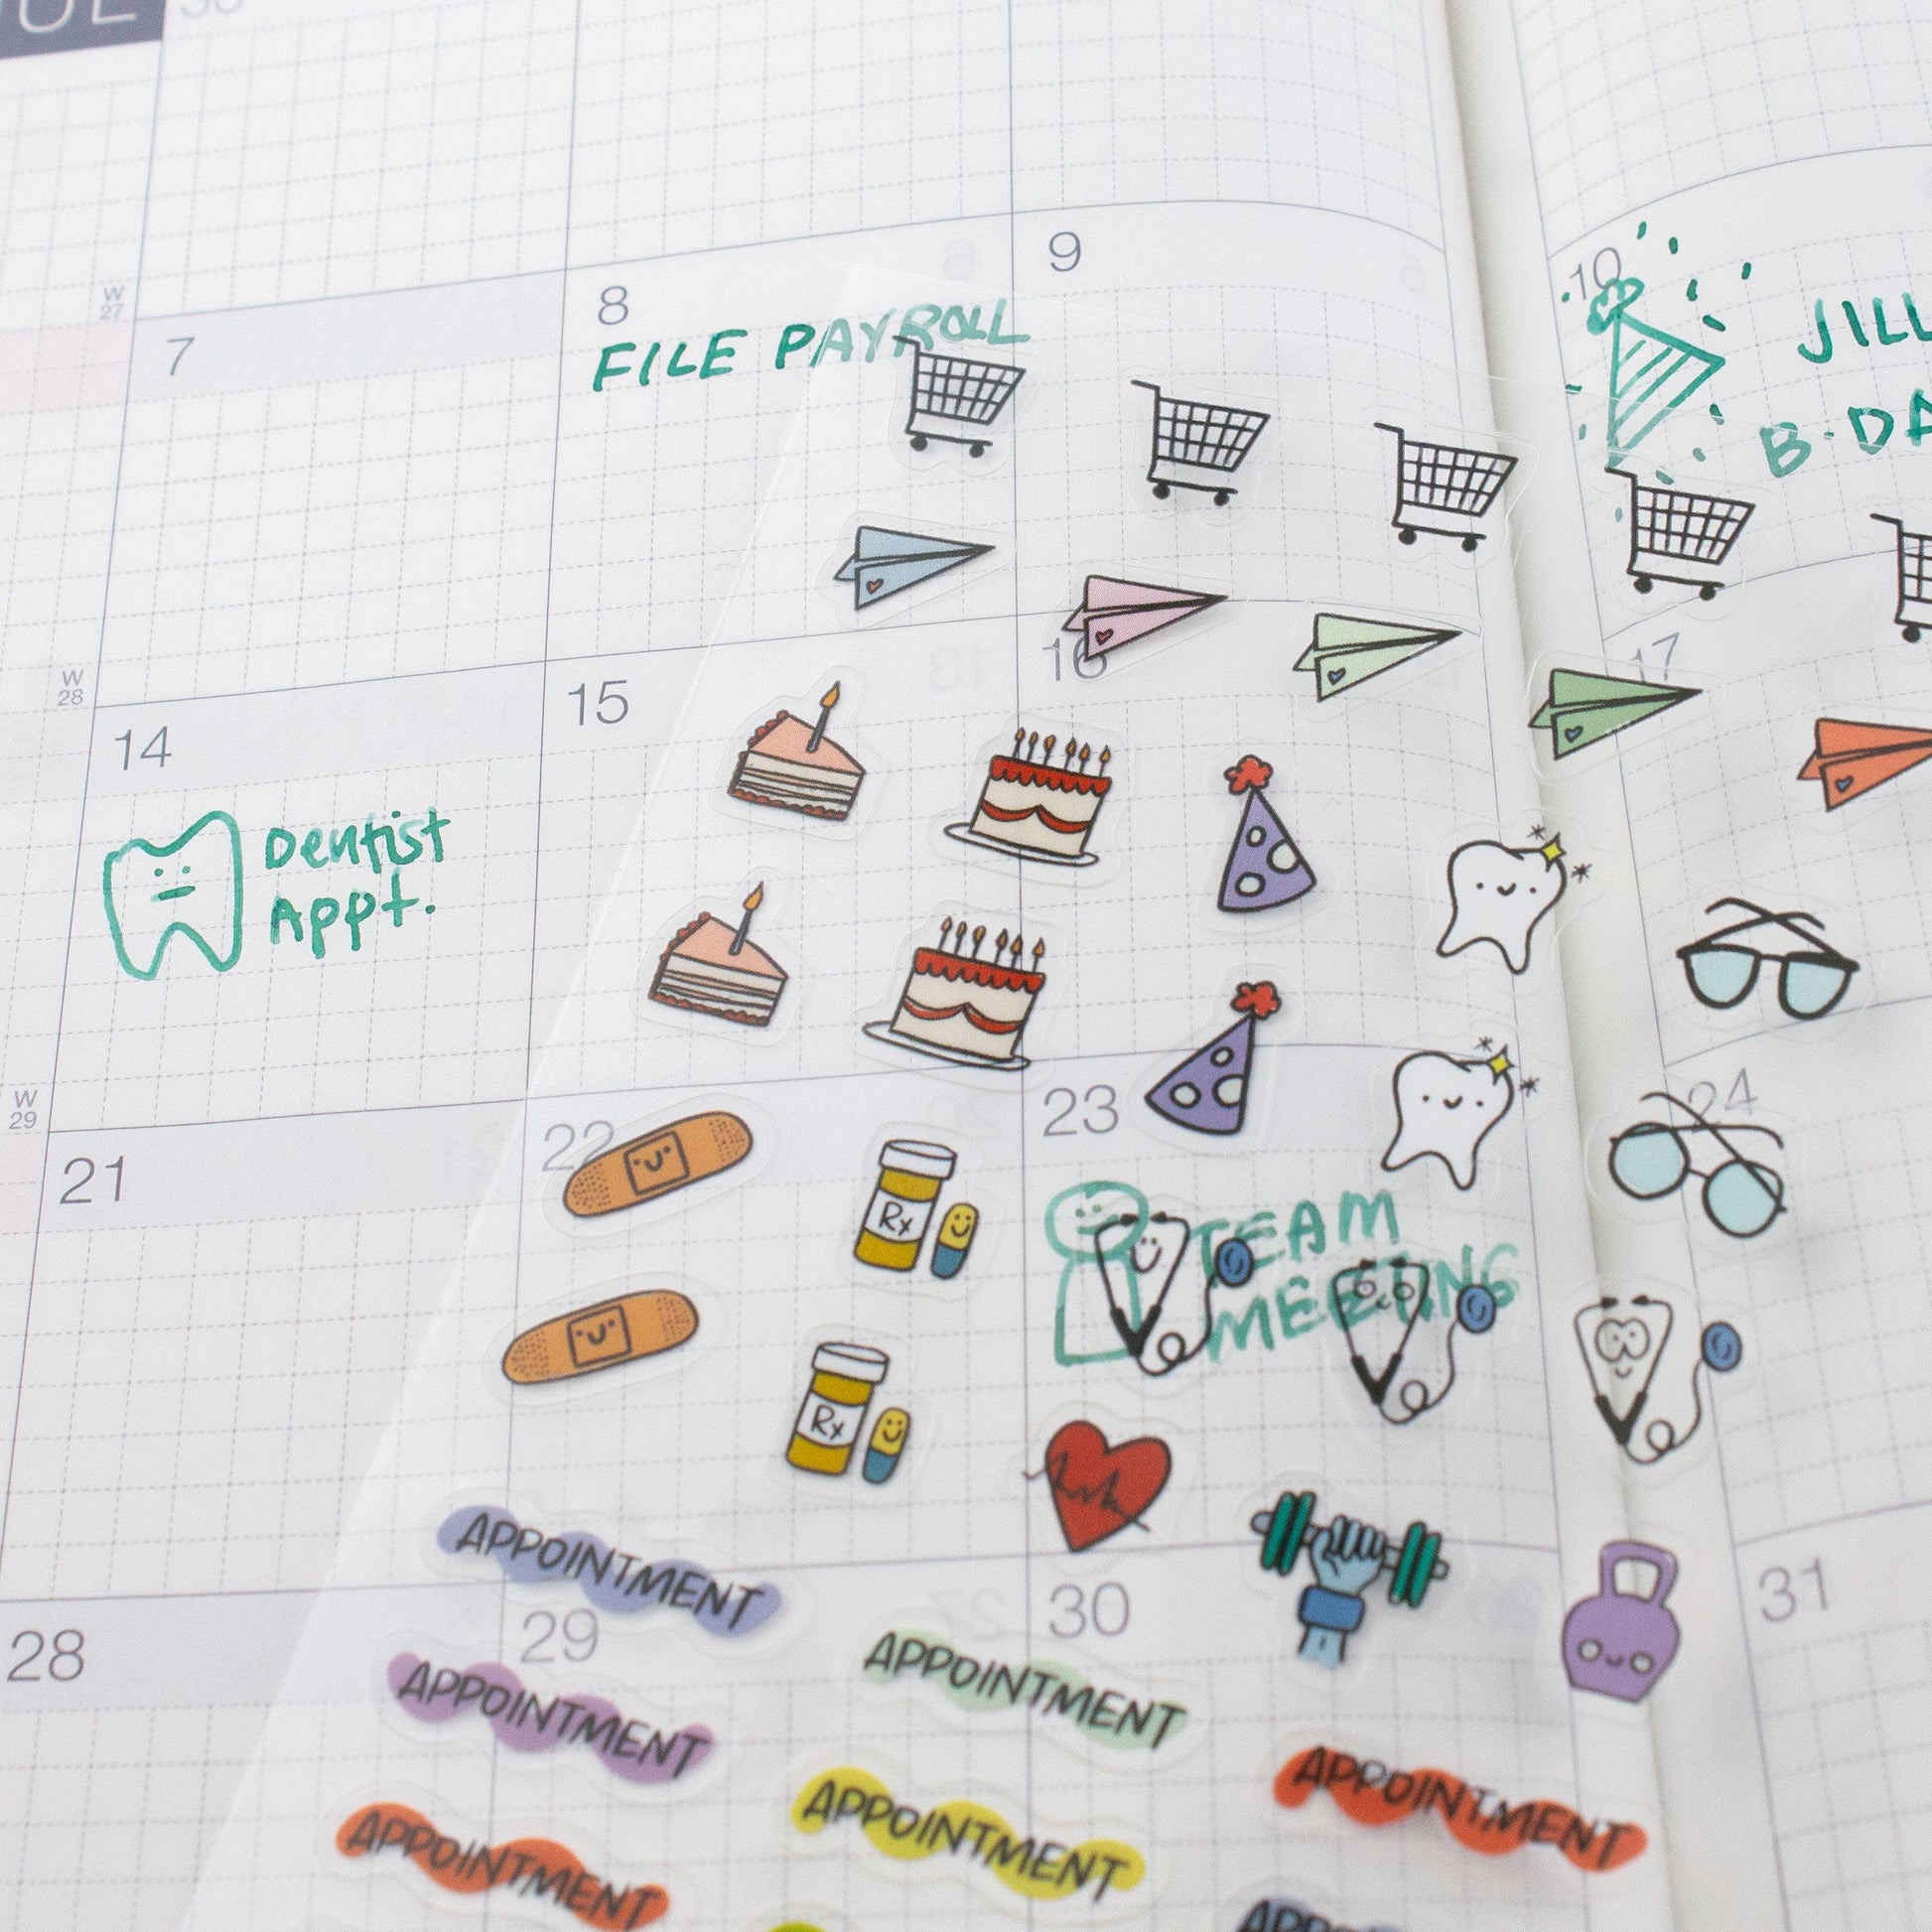 30
W
27
7
8
FILE PAYROLL
9
10
JILL
B-DA
W
28
14
Dentist
Appt.
15
16
17
W
29
21
22
Rx
Rx
23
TEAM
MEETING
24
28
29
30
31
APPOINTMENT
APPOINTMENT
APPOINTMENT
APPOINTMENT
APPOINTMENT
APPOINTMENT